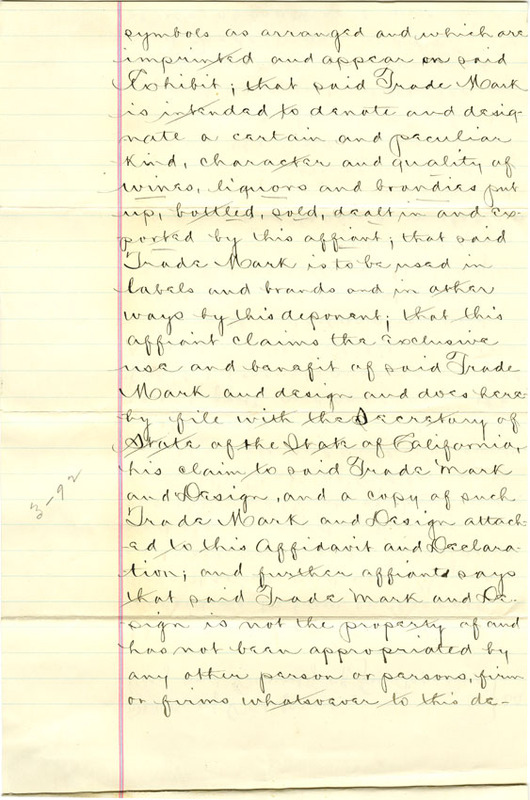 symbols as arranged and which are
imprinted and appear on said
Exhibit; that said Trade Mark
is intended to denote and desig-
nate a certain and peculiar
kind, character and quality of
wines, liquors and brandies put
up, bottled, sold, dealt in and ex-
ported by this affiant; that said
Trade Mark is to be used in
labels and brands and in other
ways by this deponent; that this
affiant claims the exclusive
use and benefit of said Trade
Mark and design and does here-
by file with the Secretary of
State of the State of California,
his claim to said Trade Mark
and Design, and a copy of such
Trade Mark and Design attach-
ed to this Affidavit and Declara-
tion; and further affiant says
that said Trade Mark and De-
sign is not the property of and
has not been appropriated by
any other person or persons, firm
or firms whatsoever to this de-
3-92